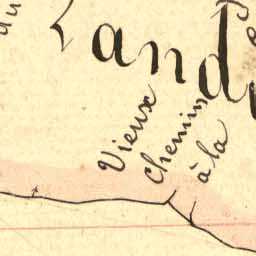 Land
Vieux
chemin
à la